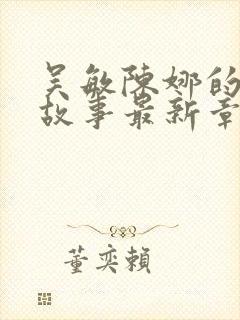 吴敏陈娜的
故事最新章
董奕賴